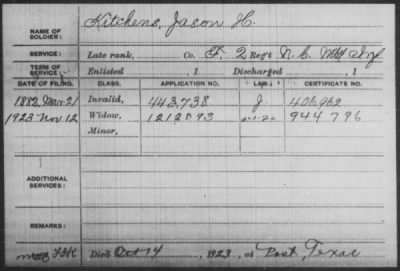 NAME OF SOLDIER: Kitchens, Jason H.
SERVICE: Late rank, Co. F, 2 Reg't N.C. Mtd Inf
TERM OF SERVICE: Enlisted , 1 Discharged , 1
DATE OF FILING. CLASS. APPLICATION NO. LAW. CERTIFICATE NO.
1882 Mar 21 Invalid, 443,738 J. 406,962
1923 Nov 12 Widow, 1212093 944796
Minor,
ADDITIONAL SERVICES:
REMARKS:
Died Oct 14, 1923, at Post, Texas